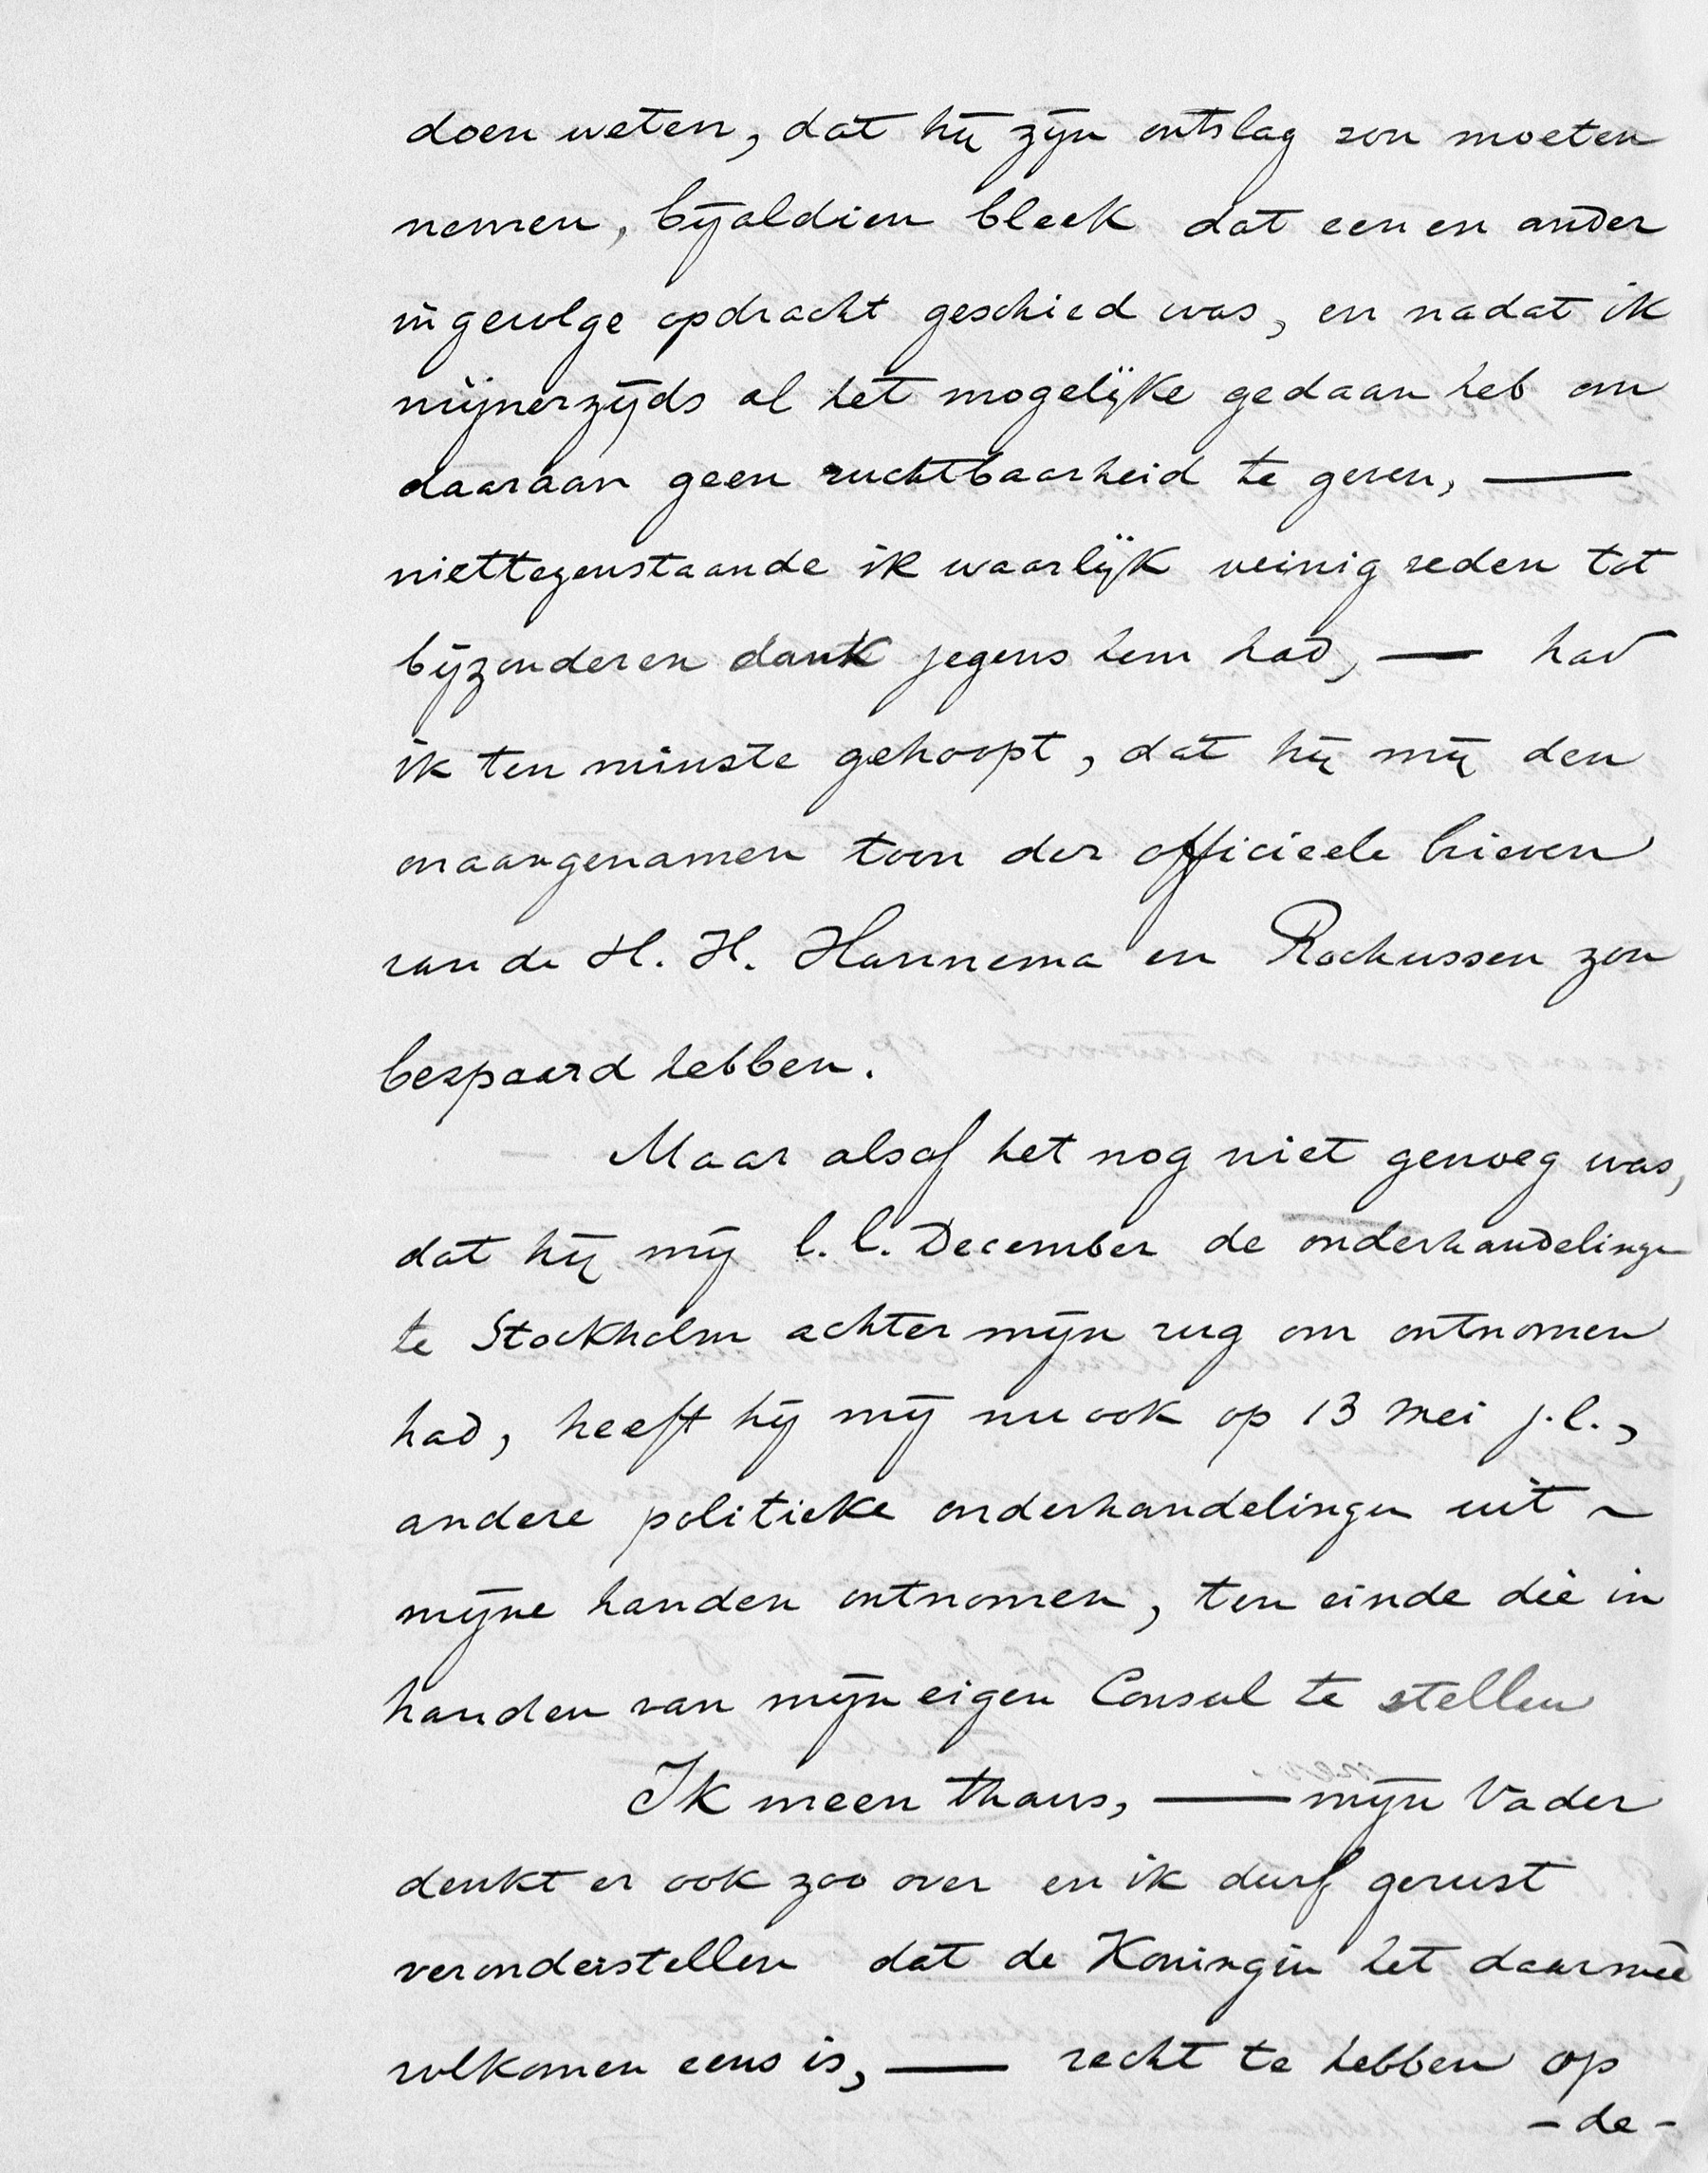 doen weten, dat hij zijn ontslag zou moeten
nemen, bijaldien bleek dat een en ander
ingevolge opdracht geschied was, en nadat ik
mijnerzijds al het mogelijke gedaan heb om
daaraan geen ruchtbaarheid te geven, —
niettegenstaande ik waarlijk weinig reden tot
bijzonderen dank jegens hem had, — had
ik ten minste gehoopt, dat hij mij den
onaangenamen toon der officieele brieven
van de H. H. Hannema en Rochussen zou
bespaard hebben.
Maar alsof het nog niet genoeg was,
dat hij mij l. l. December de onderhandelingen
te Stockholm achter mijn rug om ontnomen
had, heeft hij mij nu ook op 13 Mei j.l.,
andere politieke onderhandelingen uit ~
mijne handen ontnomen, ten einde die in
handen van mijn eigen Consul te stellen
Ik meen thans, — mijn Vader
denkt er ook zoo over en ik durf gerust
veronderstellen dat de Koningin het daarmeê
volkomen eens is, — recht te hebben op
- de -